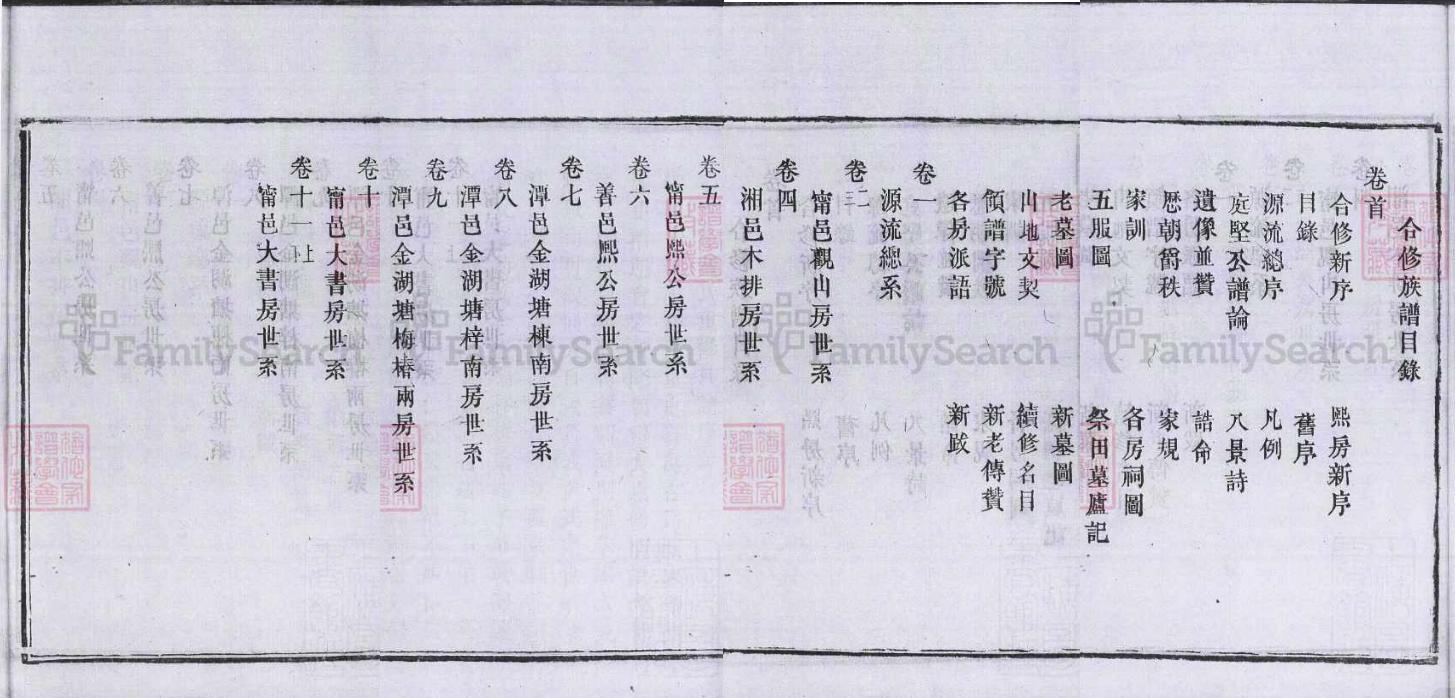 合修族譜目錄
卷首
合修新序 熙房新序
目錄 舊序
源流總序 凡例
庭堅公譜論 八景詩
遺像並贊 誥命
歷朝爵秩 家規
家訓 各房祠圖
五服圖 祭田墓廬記
老墓圖 新墓圖
山地文契 續修名目
領譜字號 新老傳贊
各房派語 新跋
卷一
源流總系
卷二三
甯邑觀山房世系
卷四
湘邑木排房世系
卷五
甯邑熙公房世系
卷六
善邑熙公房世系
卷七
潭邑金湖塘棟南房世系
卷八
潭邑金湖塘梓南房世系
卷九
潭邑金湖塘梅椿兩房世系
卷十
甯邑大書房世系
卷十一上
甯邑大書房世系
FamilySearch
FamilySearch
FamilySearch
FamilySearch